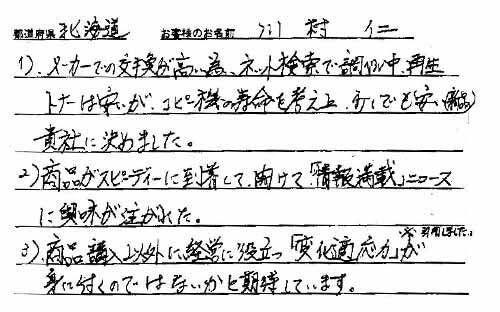 都道府県 北海道 お客様のお名前 川村 仁
1)、メーカーでの交換が高い為、ネット検索で調査中、再生
トナーは安いが、コピー機の寿命を考え、少しでも安い(新品)
貴社に決めました。
2)商品がスピーディーに到着して、開けて「情報満載」ニュース
に興味が注がれた。
※引用しました。
3)、商品購入以外に経営に役立つ「変化適応力」が
身に付くのではないかと期待しています。